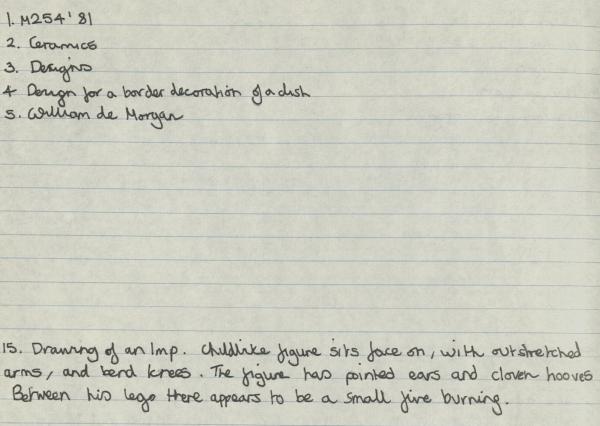 1. M254'81
2. Ceramics
3. Designs
4 Design for a border decoration of a dish
5. William de Morgan
15. Drawing of an Imp. Childlike figure sits face on, with outstretched
arms, and bend knees. The figure has pointed ears and cloven hooves
Between his legs there appears to be a small fire burning.